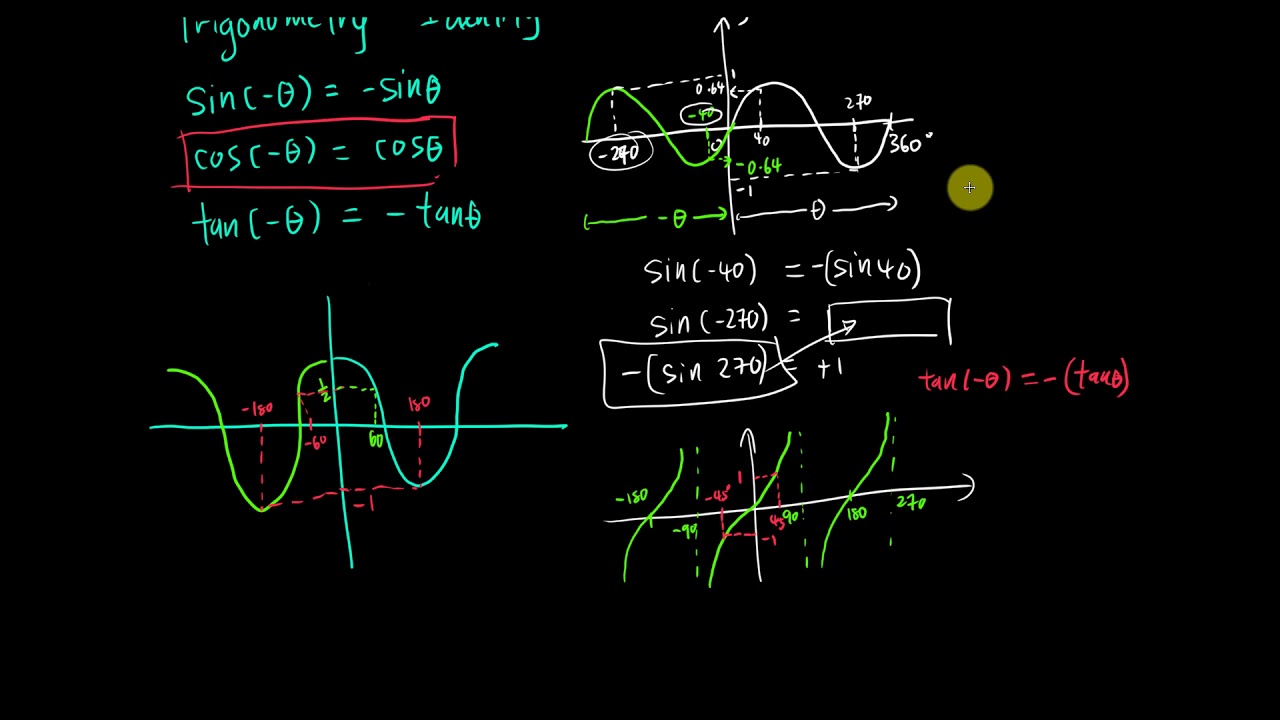 Trigonometry Identity
sin(-θ) = -sinθ
cos(-θ) = cosθ
tan(-θ) = - tanθ
1
0.64
270
-40
0
40
360°
-270
-0.64
-1
-θ
θ
sin(-40) = -(sin40)
sin(-270) =
-(sin 270) = +1
tan(-θ) = -(tanθ)
1/2
-180
180
-60
60
-1
-180
-45°
1
-90
45
90
180
270
-1